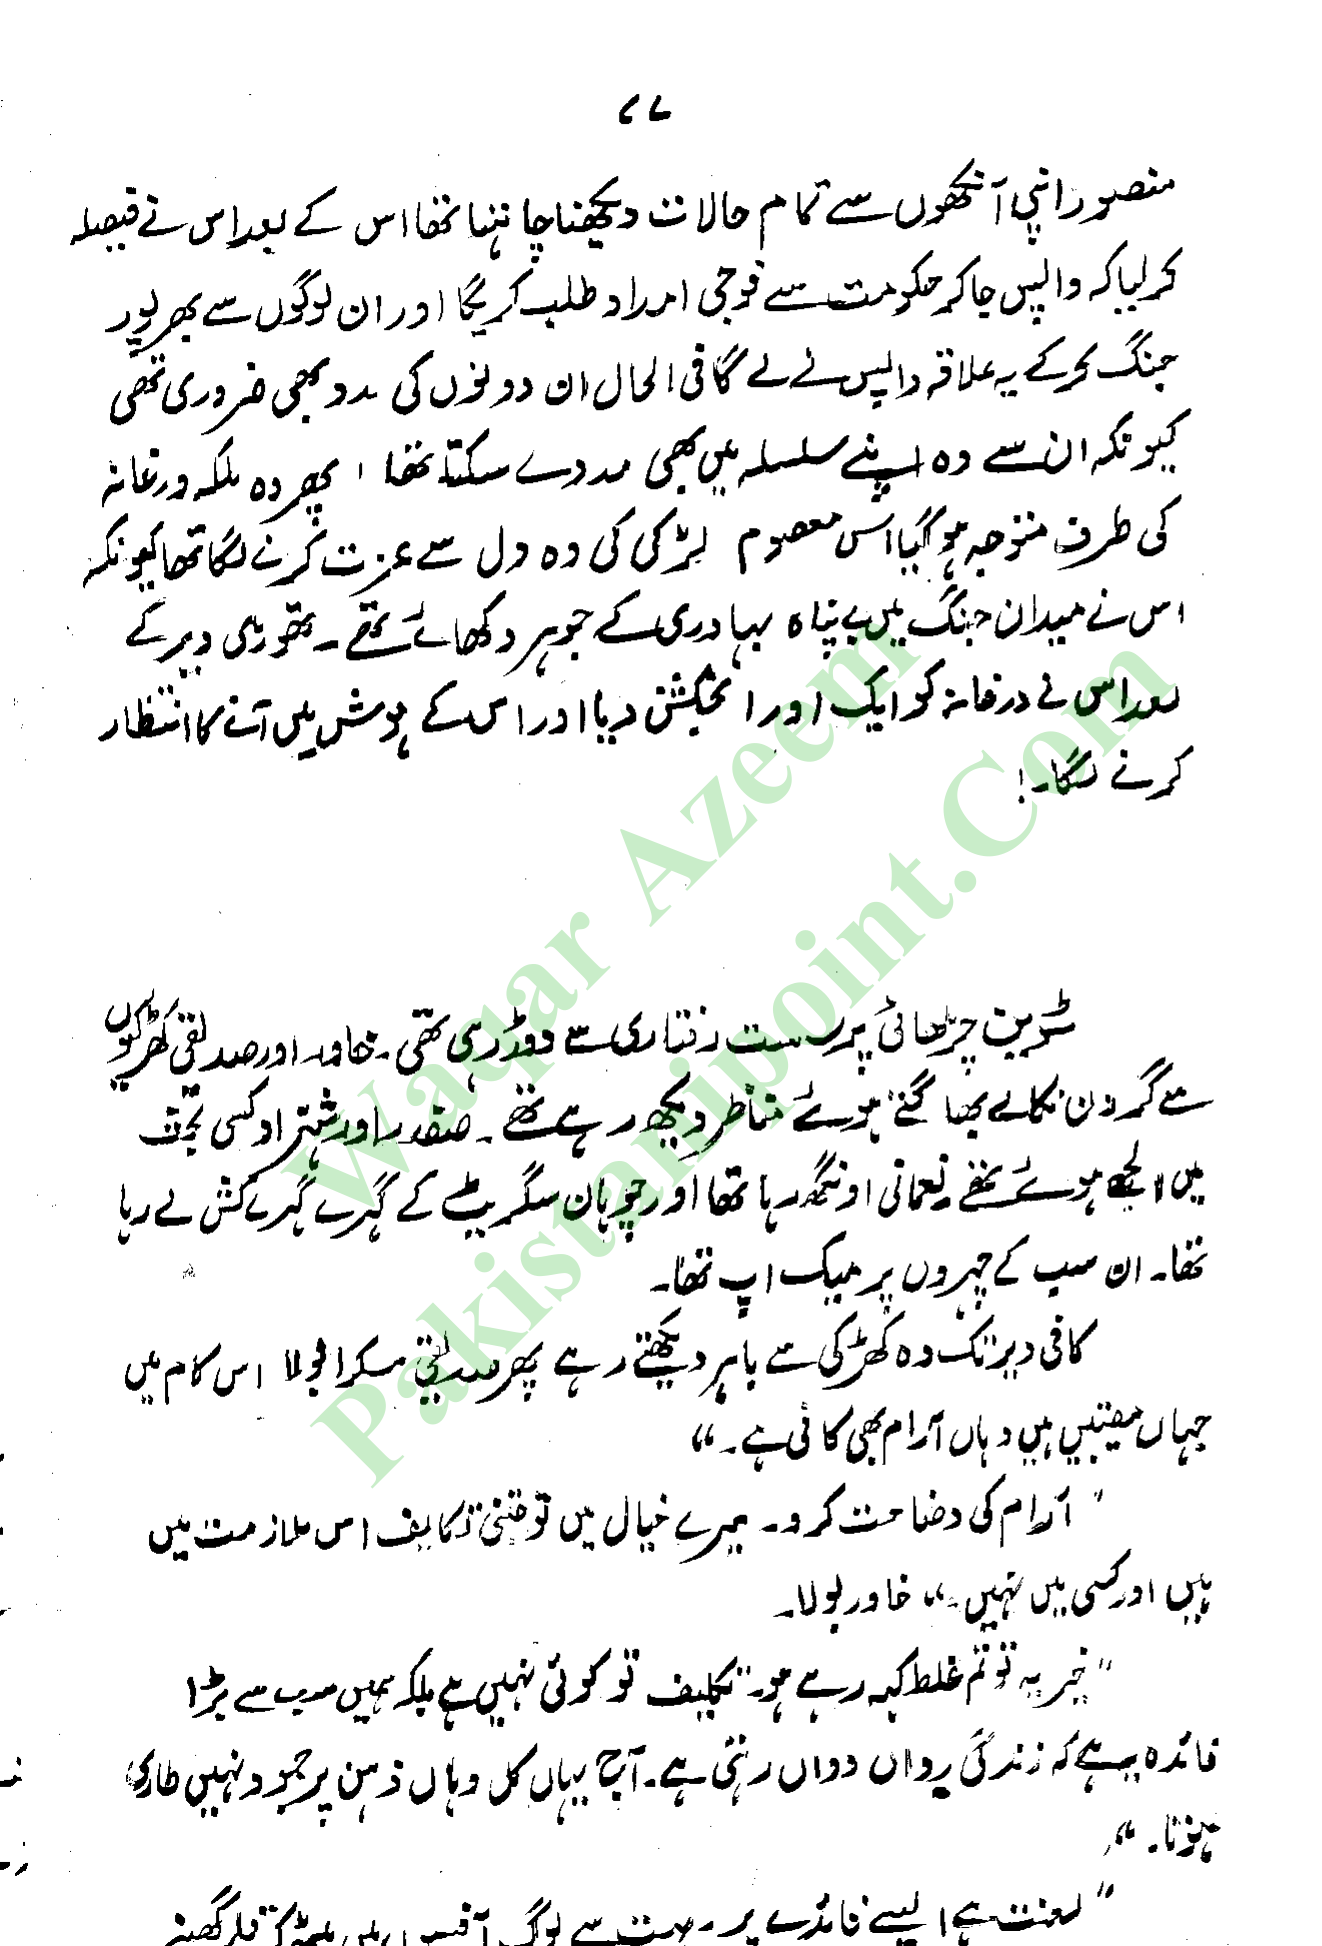 ۷۷
منصور اپنی آنکھوں سے تمام حالات دیکھنا چاہتا تھا اس کے بعد اس نے فیصلہ
کر لیا کہ واپس جا کر حکومت سے فوجی امداد طلب کریگا اور ان لوگوں سے بھر پور
جنگ کر کے یہ علاقہ واپس لے لے گا فی الحال ان دونوں کی مدد بھی ضروری تھی
کیونکہ ان سے وہ اپنے سلسلہ میں بھی مدد لے سکتا تھا ! پھر وہ ملکہ ورغانہ
کی طرف متوجہ ہو گیا اس معصوم لڑکی کی وہ دل سے عزت کرنے لگا تھا کیونکہ
اس نے میدان جنگ میں بے پناہ بہادری کے جوہر دکھائے تھے ۔ تھوڑی دیر کے
بعد اس نے درغانہ کو ایک اور انجکشن دیا اور اس کے ہوش میں آنے کا انتظار
کرنے لگا ۔!
ٹرین چڑھائی پر سست رفتاری سے دوڑ رہی تھی ۔ خاور اور صدیقی کھڑکیوں
سے گردن نکالے بھاگتے ہوئے مناظر دیکھ رہے تھے ۔ صفدر اور شہزاد کسی بحث
میں الجھے ہوئے تھے نعمانی اونگھ رہا تھا اور چوہان سگریٹ کے گہرے گہرے کش لے رہا
تھا ۔ ان سب کے چہروں پر میک اپ تھا ۔
کافی دیر تک وہ کھڑکی سے باہر دیکھتے رہے پھر صدیقی مسکرا بولا اس کام میں
جہاں مصیبتیں ہیں وہاں آرام بھی کافی ہے ۔“
" آرام کی وضاحت کرو ۔ میرے خیال میں تو جتنی تکالیف اس ملازمت میں
ہیں اور کسی میں نہیں ۔“ خاور بولا ۔
"خیر یہ تو تم غلط کہہ رہے ہو ۔ تکلیف تو کوئی نہیں ہے بلکہ ہمیں سب سے بڑا
فائدہ یہ ہے کہ زندگی رواں دواں رہتی ہے ۔ آج یہاں کل وہاں ذہن پر جمود نہیں طاری
ہوتا ۔“
" لعنت ہے ایسے فائدے پر ۔ بہت سے لوگ آفیسوں میں بیٹھ کر قلم گھستے
Waqar Azeem
Pakistanipoint.Com